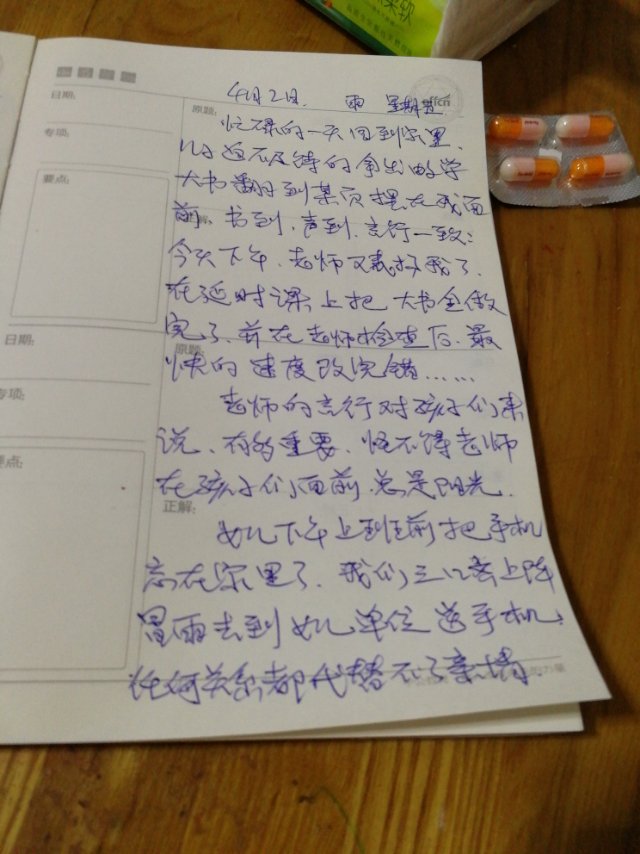 柔软
日期:
专项:
要点:
原题:
4月2日. 雨 星期
忙碌的一天回到家里.
儿子迫不及待的拿出数学
大书翻到某页摆在我面
前. 书到. 声到. 言行一致:
今天下午. 老师又表扬我了.
在延时课上把大书全做
完了. 并在老师检查后. 最
快的速度改完错……
老师的言行对孩子们来
说. 有多重要. 怪不得老师
在孩子们面前总是阳光.
女儿下午上到班前把手机
忘在家里了. 我们三口齐上阵
冒雨去到女儿单位送手机.
任何关系都代替不了亲情.
日期:
专项:
要点:
原题:
正解: